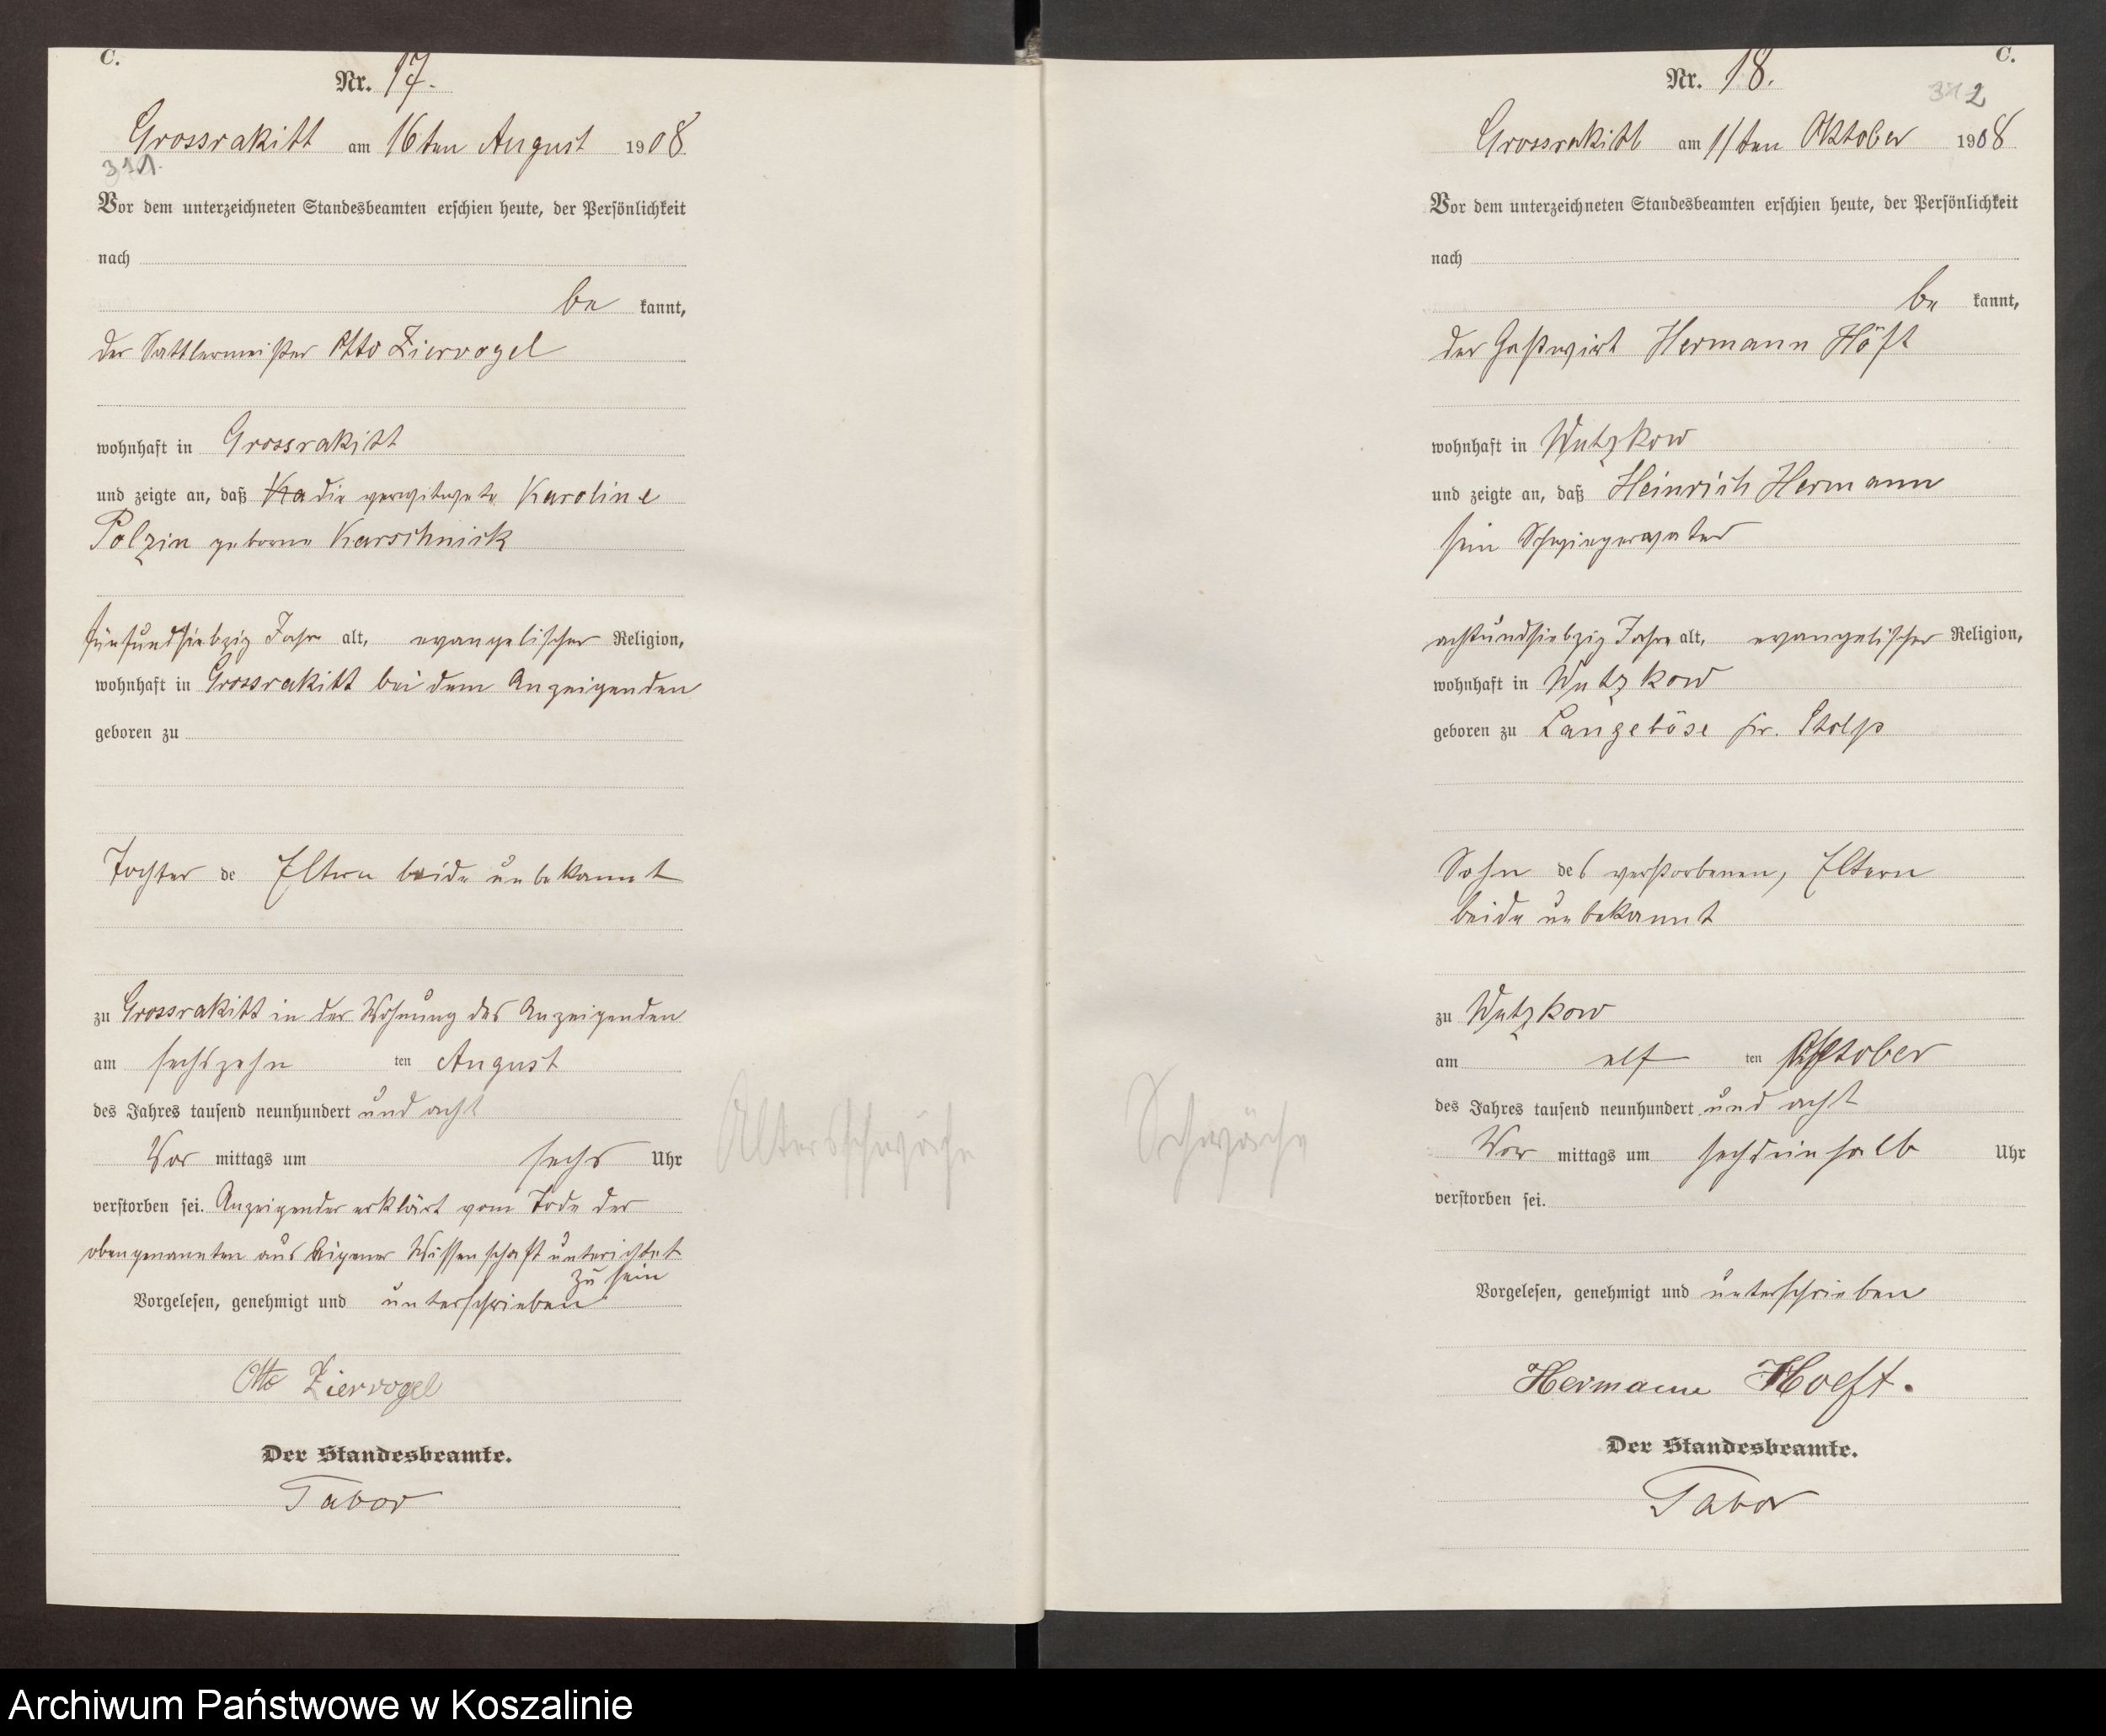 C.
Nr. 17.
Grossrakitt am 16ten August 1908
311.
Vor dem unterzeichneten Standesbeamten erschien heute, der Persönlichkeit
nach
be kannt,
der Sattlermeister Otto Ziervogel
wohnhaft in Grossrakitt
und zeigte an, daß Ka die verwitwete Karoline
Polzin geborne Karschnick
fünfundsiebzig Jahre alt, evangelischer Religion,
wohnhaft in Grossrakitt bei dem Anzeigenden
geboren zu
Tochter de Eltern beide unbekannt
zu Grossrakitt in der Wohnung des Anzeigenden
am sechszehn ten August
des Jahres tausend neunhundert und acht
Vor mittags um sechs Uhr
verstorben sei. Anzeigender erklärt vom Tode der
obengenannten aus eigener Wissenschaft unterichtet
zu sein
Vorgelesen, genehmigt und unterschrieben
Otto Ziervogel
Der Standesbeamte.
Tabor
Altersschwäche
C.
Nr. 18.
312
Grossrakitt am 11ten Oktober 1908
Vor dem unterzeichneten Standesbeamten erschien heute, der Persönlichkeit
nach
be kannt,
der Gastwirt Hermann Höft
wohnhaft in Wutzkow
und zeigte an, daß Heinrich Hermann
sein Schwiegervater
achtundsiebzig Jahre alt, evangelischer Religion,
wohnhaft in Wutzkow
geboren zu Langeböse Kr. Stolp
Sohn des verstorbenen, Eltern
beide unbekannt
zu Wutzkow
am elf ten Oktober
des Jahres tausend neunhundert und acht
Vor mittags um sechseinhalb Uhr
verstorben sei.
Vorgelesen, genehmigt und unterschrieben
Hermann Hoeft.
Der Standesbeamte.
Tabor
Schwäche
Archiwum Państwowe w Koszalinie